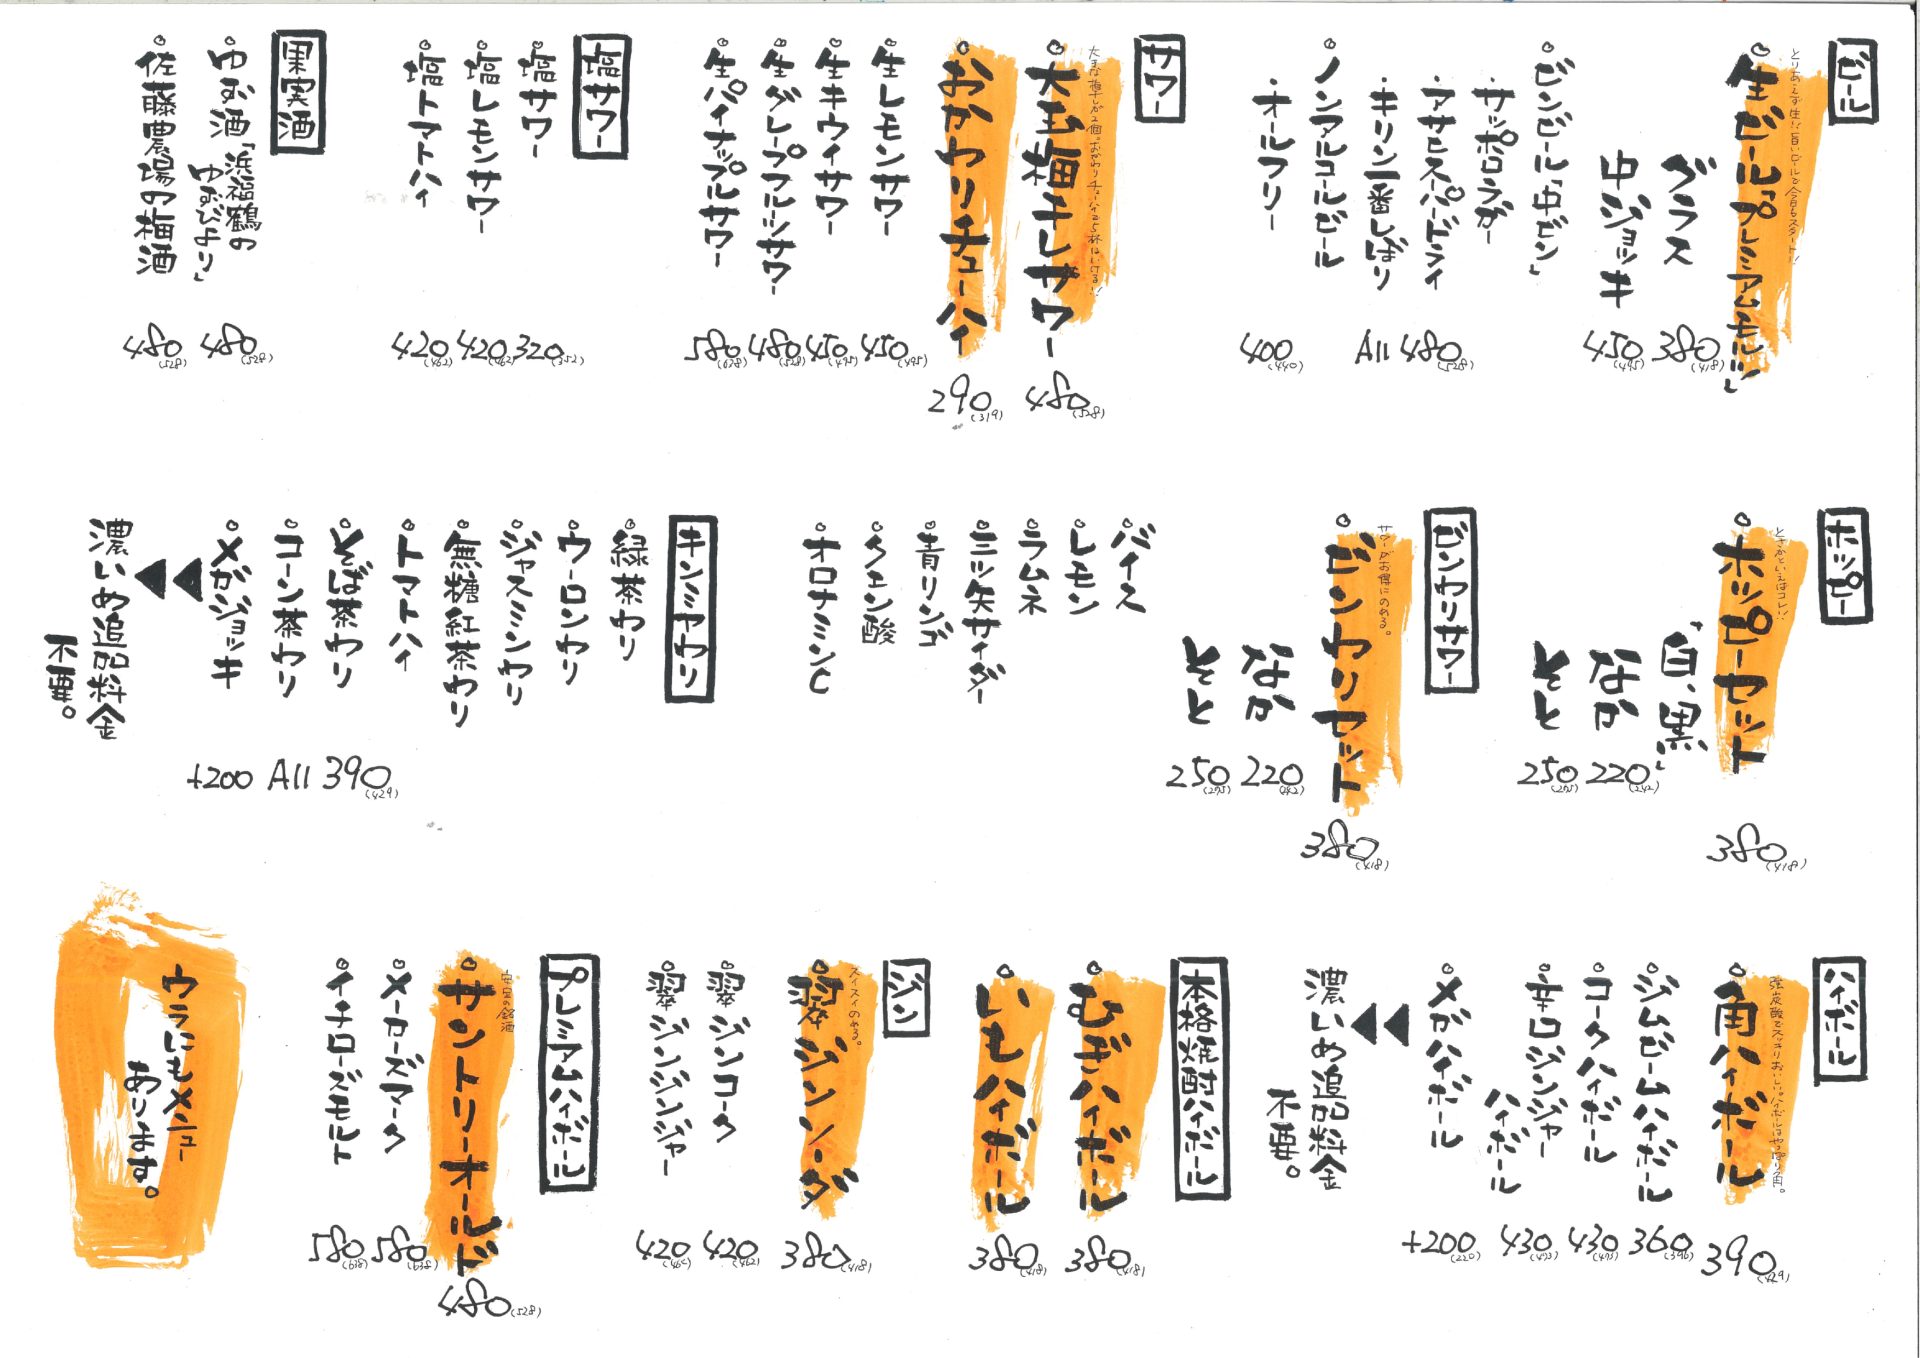 ビール
とりあえず生!!旨いビールで今日もスタート!!
生ビール「プレミアムモルツ」
グラス 380(418)
中ジョッキ 450(495)
ビンビール「中ビン」
・サッポロラガー
・アサヒスーパードライ
・キリン一番しぼり
All 480(528)
ノンアルコールビール
・オールフリー 400(440)
サワー
大きな梅干しが2個。おかわりチューハイで5杯はいける!!
大玉梅干しサワー 480(528)
おかわりチューハイ 290(319)
生レモンサワー 450(495)
生キウイサワー 450(495)
生グレープフルーツサワー 480(528)
生パイナップルサワー 580(638)
塩サワー
塩サワー 320(352)
塩レモンサワー 420(462)
塩トマトハイ 420(462)
果実酒
ゆず酒「浜福鶴の
ゆずびたり」 480(528)
佐藤農場の梅酒 480(528)
ホッピー
とさかといえばコレ!!
ホッピーセット 380(418)
「白、黒」
なか 220(242)
そと 250(275)
ビンワリサワー
サワーがお得にのめる。
ビンワリセット 380(418)
なか 220(242)
そと 250(275)
バイス
レモン
ラムネ
三ツ矢サイダー
青リンゴ
クエン酸
オロナミンC
キンミヤわり
緑茶わり
ウーロンわり
ジャスミンわり
無糖紅茶わり
トマトハイ
そば茶わり
コーン茶わり
All 390(429)
メガジョッキ +200
濃いめ追加料金
不要。
ハイボール
強炭酸でスッキリおいしい。ハイボールはやっぱり角。
角ハイボール 390(429)
ジムビームハイボール 360(396)
コークハイボール 430(473)
辛口ジンジャー
ハイボール 430(473)
メガハイボール +200(220)
濃いめ追加料金
不要。
本格焼酎ハイボール
むぎハイボール 380(418)
いもハイボール 380(418)
ジン
スイスイのめる。
翠ジンソーダ 380(418)
翠ジンコーク 420(462)
翠ジンジンジャー 420(462)
プレミアムハイボール
安定の銘酒
サントリーオールド 480(528)
メーカーズマーク 580(638)
イチローズモルト 580(638)
ウラにもメニュー
あります。